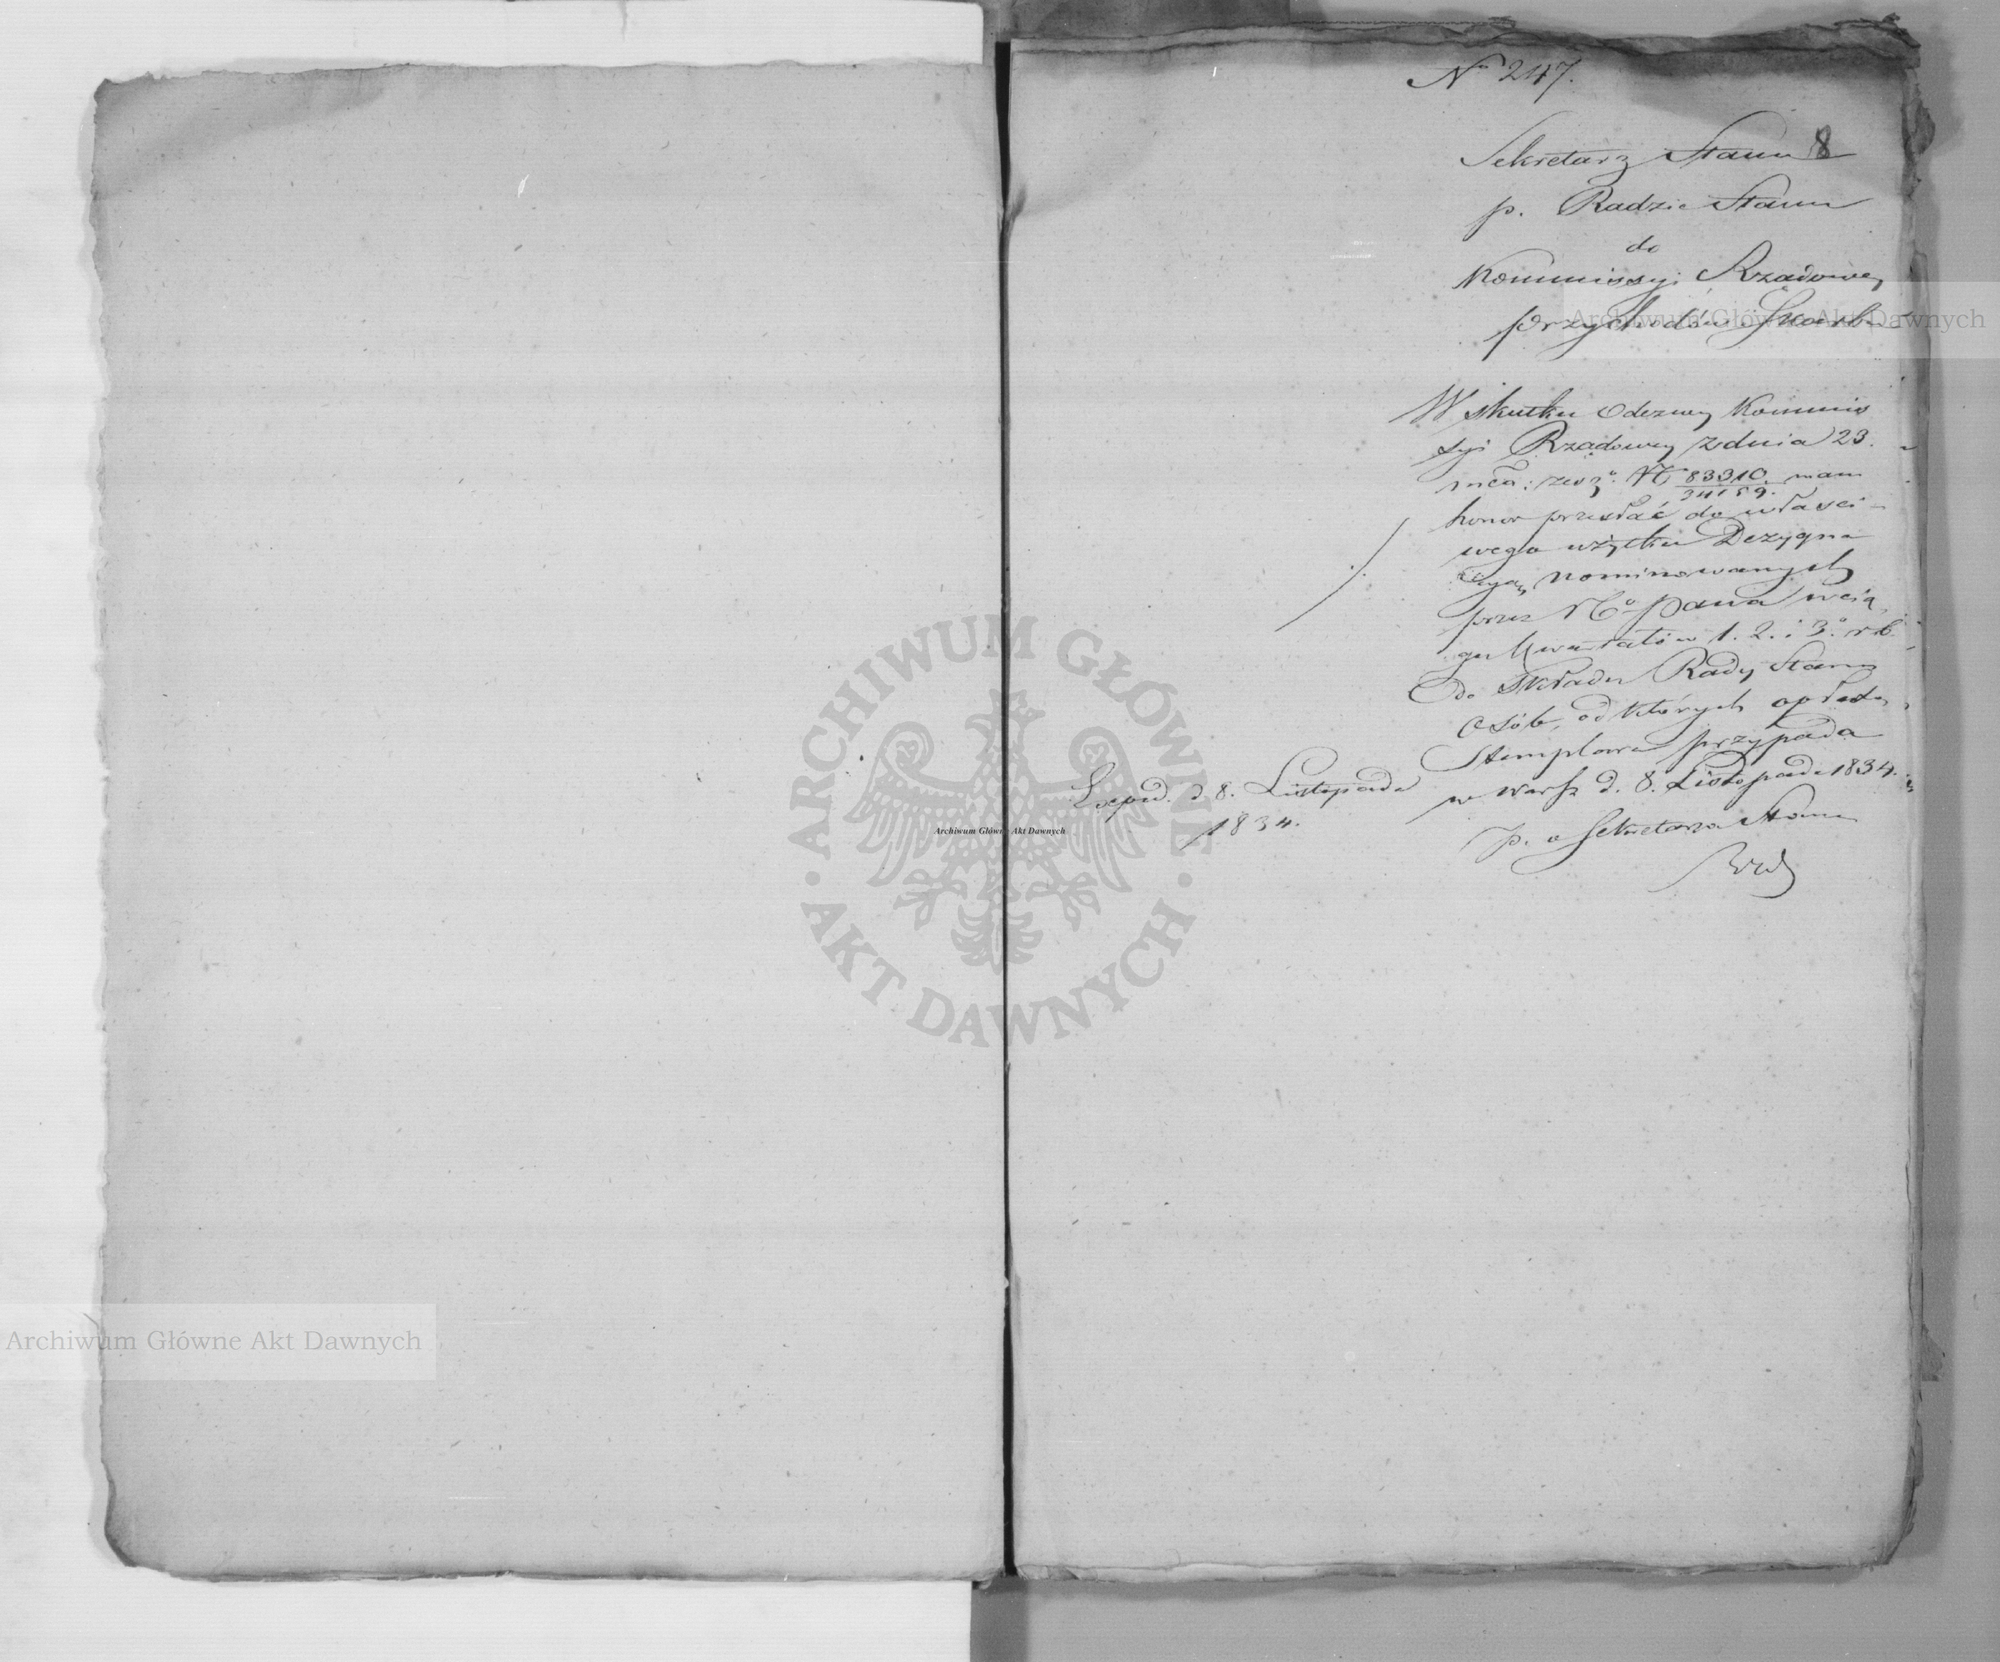 No 247.
8
Sekretarz Stanu
p. Radzie Stanu
do
Kommissyi Rządowey
Przychodów i Skarbu
W skutku Odezwy Kommis
syi Rządowey z dnia 23.
No 83310 / 34159. mam
honor przesłać do właści-
wego użytku Dezygna
cyą nominowanych
przez Pana w cią
gu Kwartałów 1. 2. i 3o r. b.
do Składu Rady Stanu
Osób, od których opłata
Stemplowa przypada
w Warsz d. 8. Listopada 1834.
p. o Sekretarza Stanu
Exped. d 8. Listopada
1834.
ARCHIWUM GŁÓWNE
· AKT DAWNYCH ·
Archiwum Główne Akt Dawnych
Archiwum Główne Akt Dawnych
Archiwum Główne Akt Dawnych